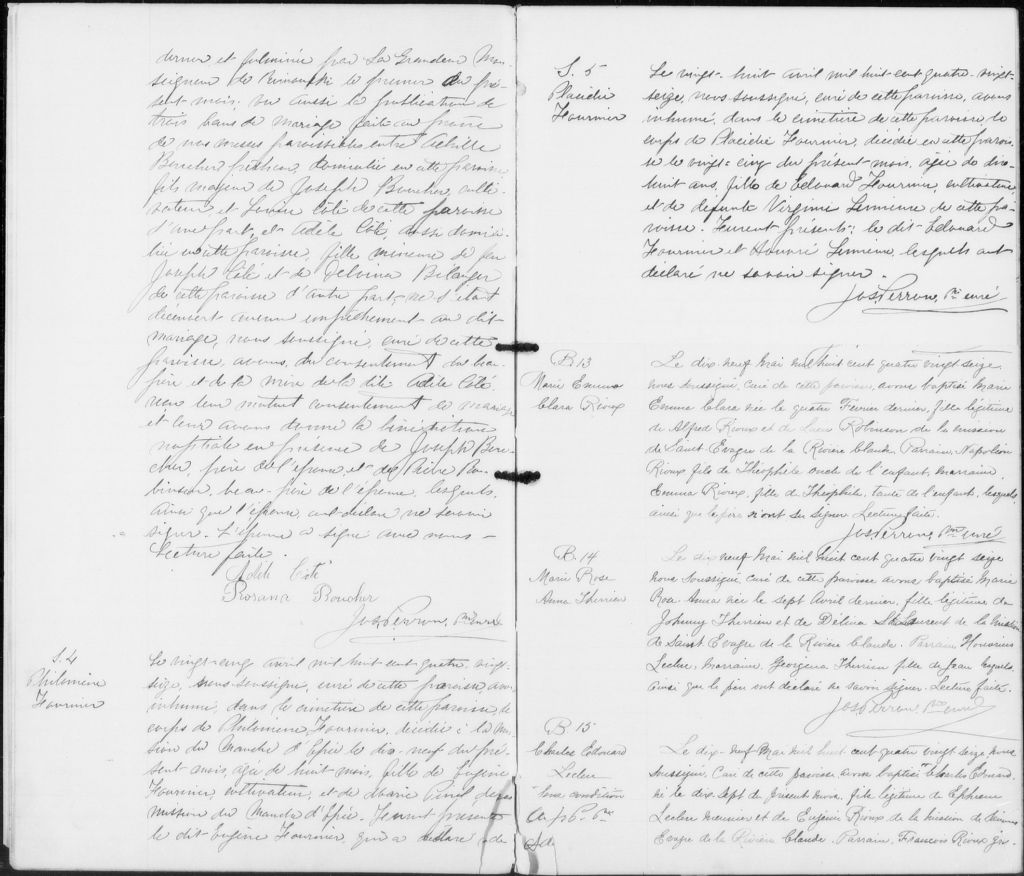 dernier et fulminée par Sa Grandeur Mon-
seigneur de Rimouski le premier du pré-
sent mois. vu aussi la publication de
trois bans de mariage faite au prône
de nos messes paroissiales entre Achille
Boucher domicilié en cette paroisse
fils majeur de Joseph Boucher, culti-
vateur et Louise Côté de cette paroisse
d'une part, et Adèle Côté, aussi domici-
liée en cette paroisse, fille mineure de feu
Joseph Côté et de Delvina Belanger
de cette paroisse d'autre part, ne s'étant
découvert aucun empêchement au dit
mariage, nous soussigné, curé de cette
paroisse, avons, du consentement du beau
père et de la mère de la dite Adèle Côté,
reçu leur mutuel consentement de mariage
et leur avons donné la bénédiction
nuptiale en présence de Joseph Bou-
cher, père de l'époux et de
beau-père de l'épouse, lesquels,
ainsi que l'époux, ont déclaré ne savoir
signer. L'épouse a signé avec nous -
Lecture faite.
Adèle Côté
Rosanna Boucher
Jos Perron, Ptre Curé
S. 4
Philomène
Fournier
Le vingt-cinq avril mil huit-cent quatre-vingt-
seize, nous soussigné, curé de cette paroisse, avons
inhumé, dans le cimetière de cette paroisse, le
corps de Philomène Fournier, décédée à la Mis-
sion du Manche d'Epée le dix-neuf du pré-
sent mois, agée de huit mois, fille de Eugène
Fournier, cultivateur, et de Marie de la
mission du Manche d'Epée. Furent présents
le dit Eugène Fournier, qui a déclaré ne
S. 5
Placidie
Fournier
Le vingt-huit avril mil huit-cent quatre-vingt-
seize, nous soussigné, curé de cette paroisse, avons
inhumé, dans le cimetière de cette paroisse le
corps de Placidie Fournier, décédée en cette parois-
se le vingt-cinq du présent mois, agée de dix-
huit ans, fille de Edouard Fournier, cultivateur,
et de défunte Virginie Lemieux de cette pa-
roisse. Furent présents: le dit Edouard
Fournier et Honoré Lemieux, lesquels ont
déclaré ne savoir signer.
Jos Perron, Ptre curé
B. 13
Marie Emma
Clara Rioux
Le dix neuf Mai mil huit cent quatre vingt seize
nous soussigné, Curé de cette paroisse, avons baptisé Marie
Emma Clara née le quatre Fevrier dernier, fille légitime
de Alfred Rioux et de Robinson de la mission
de Saint Evagre de la Rivière Claude. Parrain, Napoléon
Rioux fils de Théophile oncle de l'enfant, marraine,
Emma Rioux, fille de Théophile, tante de l'enfant, lesquels
ainsi que le père n'ont su signer. Lecture faite.
Jos Perron, Ptre curé
B. 14
Marie Rose
Anna Therrien
Le dix neuf Mai mil huit cent quatre vingt seize
nous soussigné, Curé de cette paroisse avons baptisé Marie
Rose Anna née le sept Avril dernier, fille légitime de
Johnny Therrien et de Délina St Laurent de la mission
de Saint Evagre de la Rivière Claude. Parrain, Honorius
Leclerc, marraine, Georgena Therrien fille de Jean lesquels
ainsi que le père ont déclaré ne savoir signer. Lecture faite.
Jos Perron, Ptre curé
B. 15
Charles Edouard
Leclerc
Sous condition
Le dix-neuf Mai mil huit cent quatre vingt seize nous
soussigné, Curé de cette paroisse avons baptisé Charles Edouard
né le dix sept de présent mois, fils légitime de Ephrem
Leclerc menuisier et de Eugénie Rioux de la mission de
Evagre de la Rivière Claude. Parrain, Francois Rioux